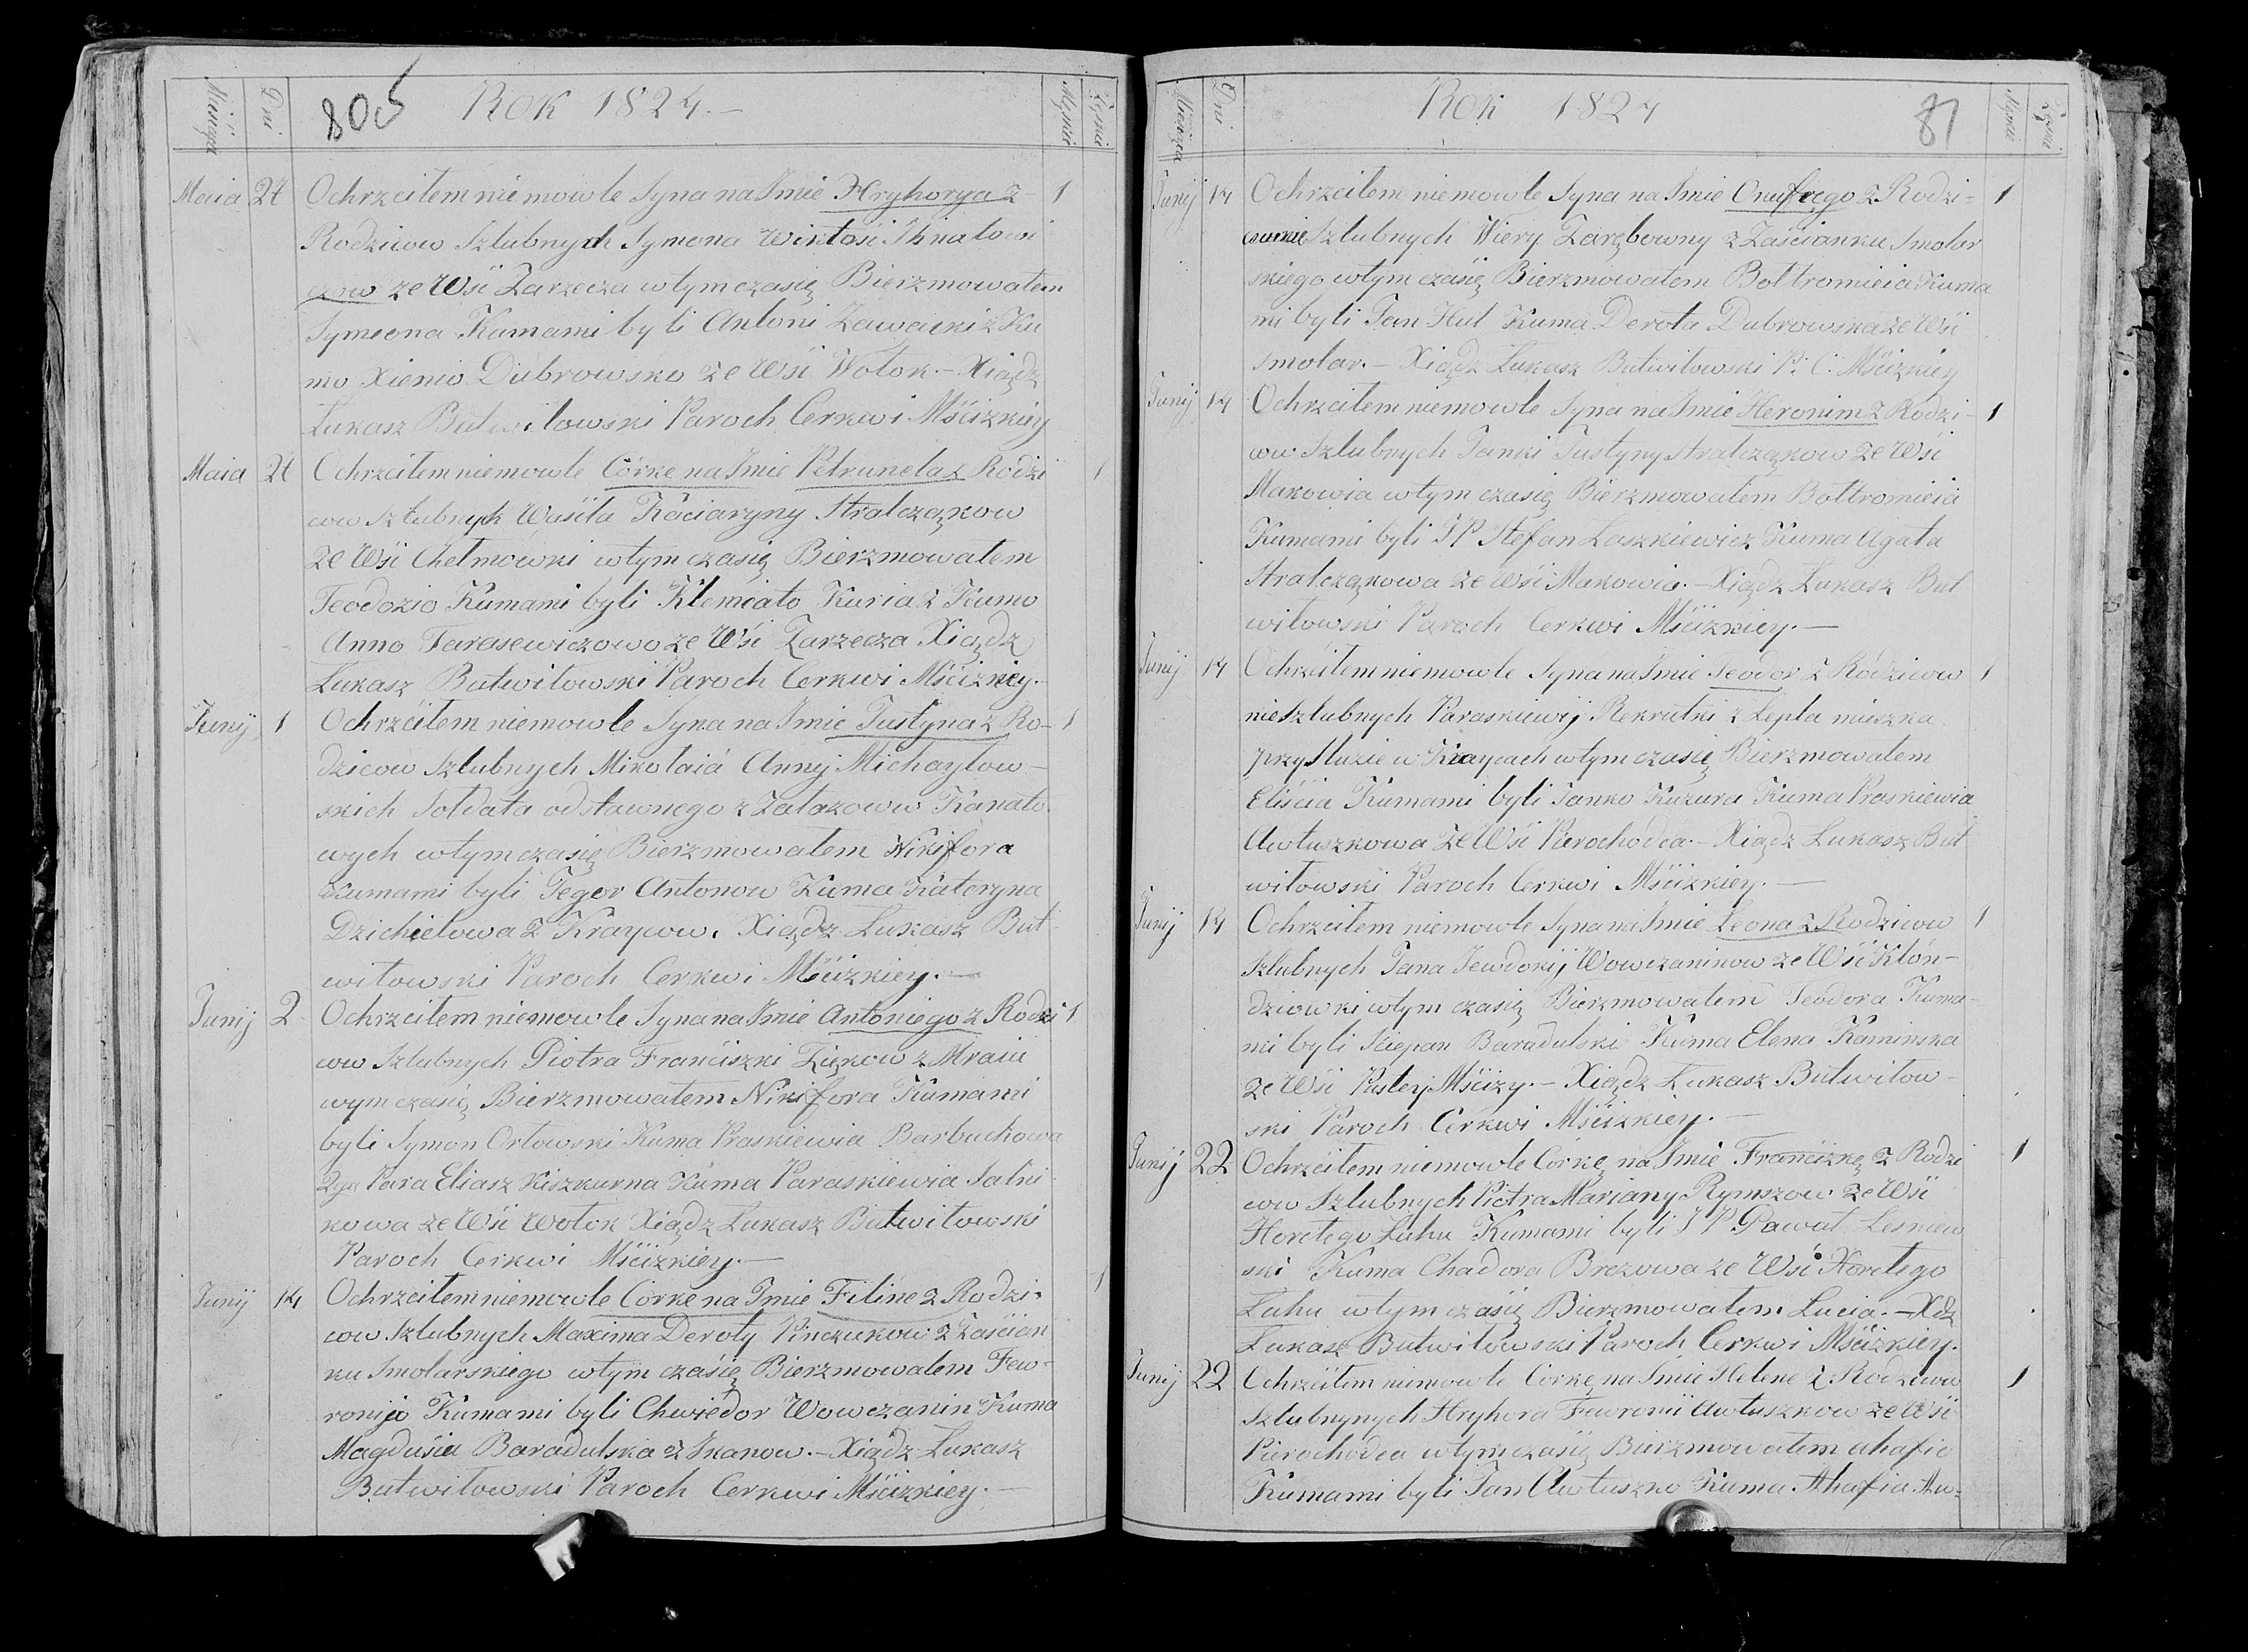 Miesiąca Dni 80 Rok 1824.- Męzkie Żęnkie
Maia 2t Ochrzcitem niemowle Syna na Jmie Hryhorya z 1
Rodzicow Szlubnych Symona Wiktosi Ihnatowi
czow ze Wsi Zarzecza wtym czasię Bierzmowatem
Symeona Kumami byli Antoni Zawacki z Ku
mo Xienio Dubrowsko ze Wsi Wolok.- Xiądz
Lukasz Butwilowski Paroch Cerkwi Mścizkiey
Maia 2t Ochrzcitem niemowle Córke na Jmie Petrunela z Rodzi 1
cow Szlubnych Wasila Kaciaryny Stralcząkow
ze Wsi Chelmowki wtym czasię Bierzmowatem
Teodozio Kumami byli Klemiato Kuria z Kumo
Anno Tarasewiczowo ze Wsi Zarzecza Xiądz
Lukasz Butwilowski Paroch Cerkwi Mścizkiey.-
Junij 1 Ochrzcitem niemowle Syna na Jmie Justyna z Ro- 1
dzicow Szlubnych Mikolaia Anny Michaylow-
skich Soldata odstawnego z Kanato
wych wtym czasię Bierzmowatem Nikifora
Kumami byli Jegor Antonow Kuma Kateryna
Dzichielowa z Kraycow. Xiądz Lukasz But
wilowski Paroch Cerkwi Mścizkiey.-
Junij 2 Ochrzcitem niemowle Syna na Jmie Antoniego z Rodzi 1
cow Szlubnych Piotra Franciszki Ziąkow z Mraiu
wym czasię Bierzmowatem Nikifora Kumami
byli Symon Orlowski Kuma Praskiewia Barbuchowa
2ga Para Eliasz Kiszkurna Kuma Paraskiewia Salni
kowa ze Wsi Wolok Xiądz Lukasz Butwilowski
Paroch Cerkwi Mścizkiey.-
Junij 14 Ochrzcitem niemowle Córke na Jmie Filine z Rodzi- 1
cow Szlubnych Maxima Deroty Pinczukow z Zaścian
ku Smolarskiego wtym czasię Bierzmowatem Few-
ronijo Kumami byli Chwiedor Wowczanin Kuma
Magdusia Baradulska z Ikanow.- Xiądz Lukasz
Butwilowski Paroch Cerkwi Mścizkiey.-
Miesiąca Dni Rok 1824 81 Męzkie Żęnkie
Junij 14 Ochrzcitem niemowle Syna na Jmie Onufrego z Rodzi- 1
cow nie Szlubnych Wiery Zarębowny z Zaścianku Smolar
skiego wtym czasię Bierzmowatem Boltromieia Kuma
mi byli Jan Hut Kuma Derota Dubrowska ze Wsi
Smolar.- Xiądz Lukasz Butwilowski P. C. Mścizkiey
Junij 14 Ochrzcitem niemowle Syna na Jmie Heronim z Rodzi- 1
cow Szlubnych Janki Justyny Stralcząkow ze Wsi
Makowia wtym czasię Bierzmowatem Boltromieia
Kumami byli J P Stefan Laszkiewicz Kuma Agata
Stralcząkowa ze Wsi Makowia.- Xiądz Lukasz But
wilowski Paroch Cerkwi Mścizkiey.-
Junij 14 Ochrzcitem niemowle Syna na Jmie Teodor z Rodzicow 1
nie Szlubnych Paraskiewij Rekrutki z Lepla mieszka
przy Sluzie w Kraycach wtym czasię Bierzmowatem
Eliścia Kumami byli Janko Kuzura Kuma Praskiewia
Awtuszkowa ze Wsi Pierochodca.- Xiądz Lukasz But
wilowski Paroch Cerkwi Mścizkiey.-
Junij 14 Ochrzcitem niemowle Syna na Jmie Leona z Rodzicow 1
Szlubnych Jana Jewdokij Wowczaninow ze Wsi Klón-
dziowki wtym czasię Bierzmowatem Teodora Kuma-
mi byli Sciepan Baradulski Kuma Elena Kaminska
ze Wsi Pustey Mścizy.- Xiądz Lukasz Butwilow-
ski Paroch Cerkwi Mścizkiey.-
Junij 22 Ochrzcitem niemowle Córkę na Jmie Franciszkę z Rodzi 1
cow Szlubnych Piotra Mariany Rymszow ze Wsi
Horelego Luhu Kumami byli J P. Pawal Lesniew
ski Kuma Chadora Brezowa ze Wsi Horelego
Luhu wtym czasię Bierzmowatem Lucia.- Xdz
Lukasz Butwilowski Paroch Cerkwi Mścizkiey.
Junij 22 Ochrzcitem niemowle Córkę na Jmie Helene z Rodzicow 1
Szlubnynych Hryhora Fewronii Awtuszkow ze Wsi
Pierochodca wtym czasię Bierzmowatem Ahafio
Kumami byli Jan Awtuszko Kuma Ahafia Aw-